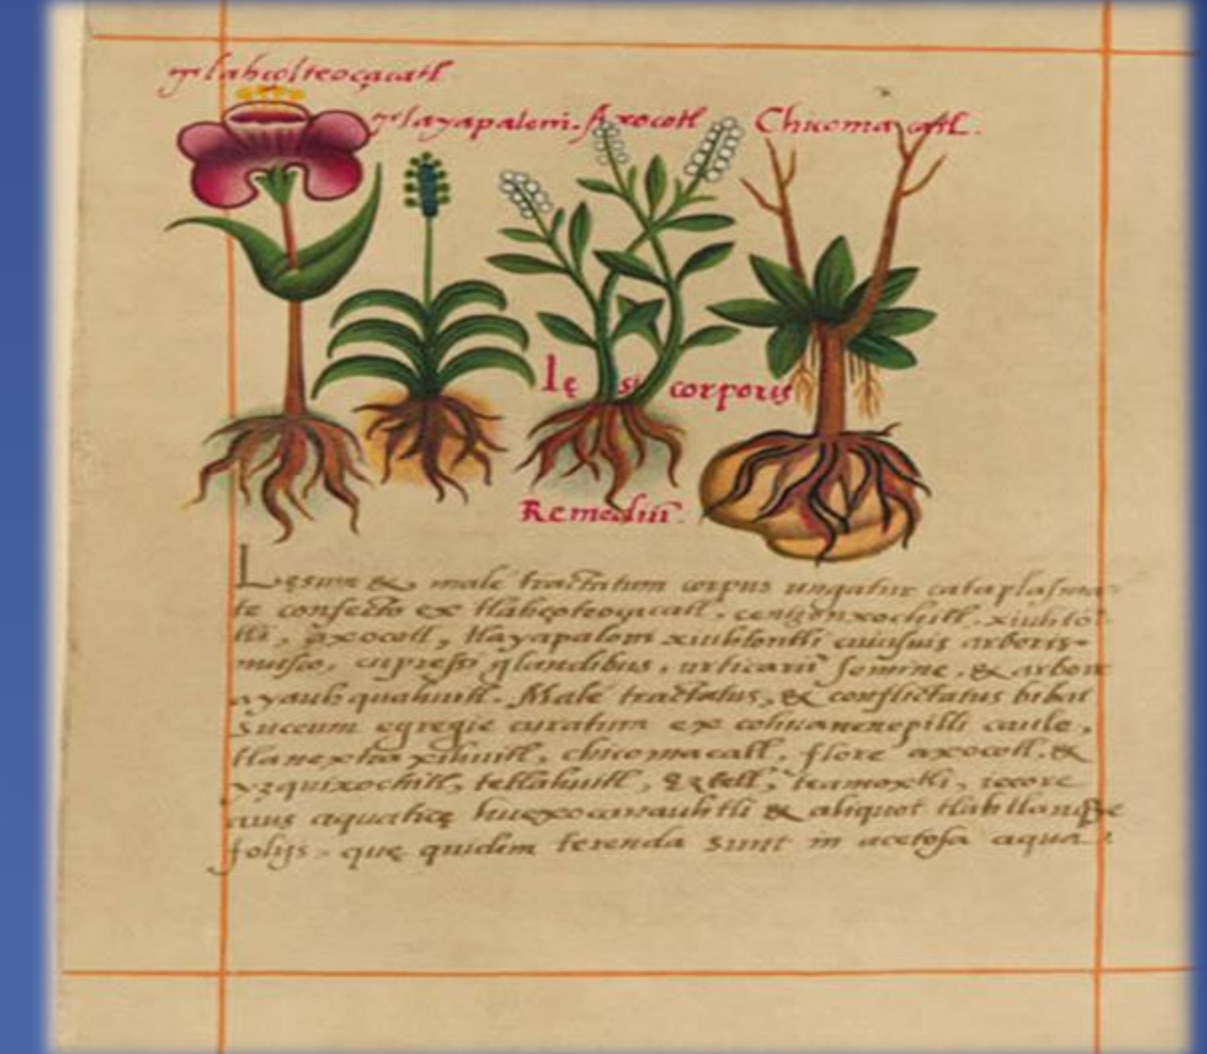 Tlahçolteoçacatl
Tlayapaloni. Axocotl Chicomacatl.
Lę si corporis
Remediū.
Lęsum & male tractatum corpus ungatur cataplasma-
te confecto ex tlahçolteoçacatl, centzonxochitl, xiuhto-
tli, axocotl, tlayapaloni xiuhtontli cuiusuis arboris
musco, cupressi glandibus, urticarū semine, & arbore
ayauh quahuitl. Male tractatus, & conflictatus bibat
succum egregie curatum ex cohuanenepilli caule,
tlanextia xihuitl, chicomacatl, flore axocotl, &
yzquixochitl, tetlahuitl, eztetl, teamoxtli, iecore
auis aquaticę huexocanauhtli & aliquot
folijs, quę quidem terenda sunt in acetosa aqua.